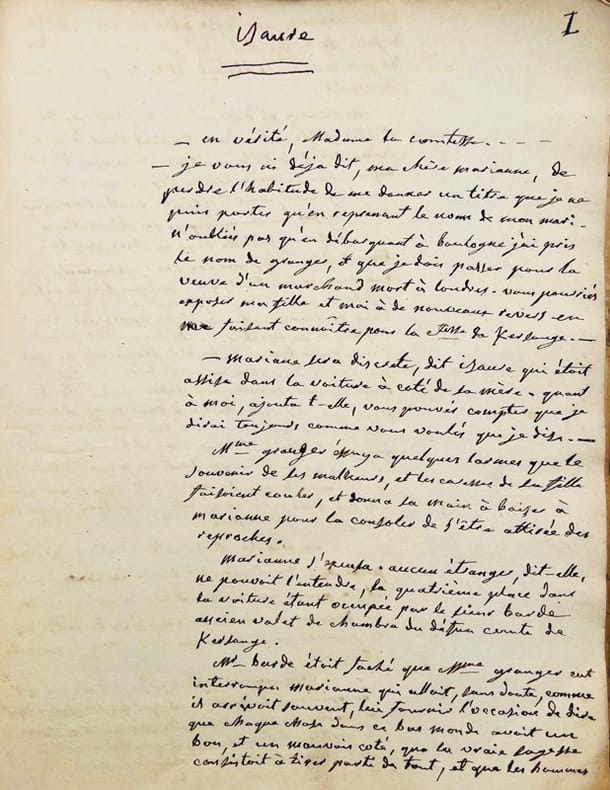 I
isaure
— en vérité, Madame la comtesse. - - - -
— je vous ai déja dit, ma chère marianne, de
perdre l'habitude de me donner un titre que je ne
puis porter qu'en reprenant le nom de mon mari.
n'oubliés pas qu'en débarquant à boulogne j'ai pris
le nom de granger, et que je dois passer pour la
veuve d'un marchand mort à londres. vous pourriés
exposer ma fille et moi à de nouveaux revers en
me faisant connoître pour la Ctesse de Kersange. —
— mariane sera discrete, dit isaure qui étoit
assise dans la voiture à coté de sa mère. quant
à moi, ajouta t-elle, vous pouvés compter que je
dirai toujours comme vous voulés que je dise. —
Mme granger éssuya quelques larmes que le
souvenir de ses malheurs, et les caresses de sa fille
faisoient couler, et donna sa main à baiser à
marianne pour la consoler de s'être attirée des
reproches.
marianne s'excusa. aucun étranger, dit-elle,
ne pouvoit l'entendre, la quatrième place dans
la voiture étant occupée par le sieur barde
ancien valet de chambre du défun comte de
Kersange.
Mr barde étoit faché que Mme granger eut
interrompu marianne qui alloit, sans doute, comme
il arrivoit souvent, lui fournir l'occasion de dire
que chaque chose dans ce bas monde avoit un
bon, et un mauvais coté, que la vraie sagesse
consistoit à tirer parti de tout, et que les hommes